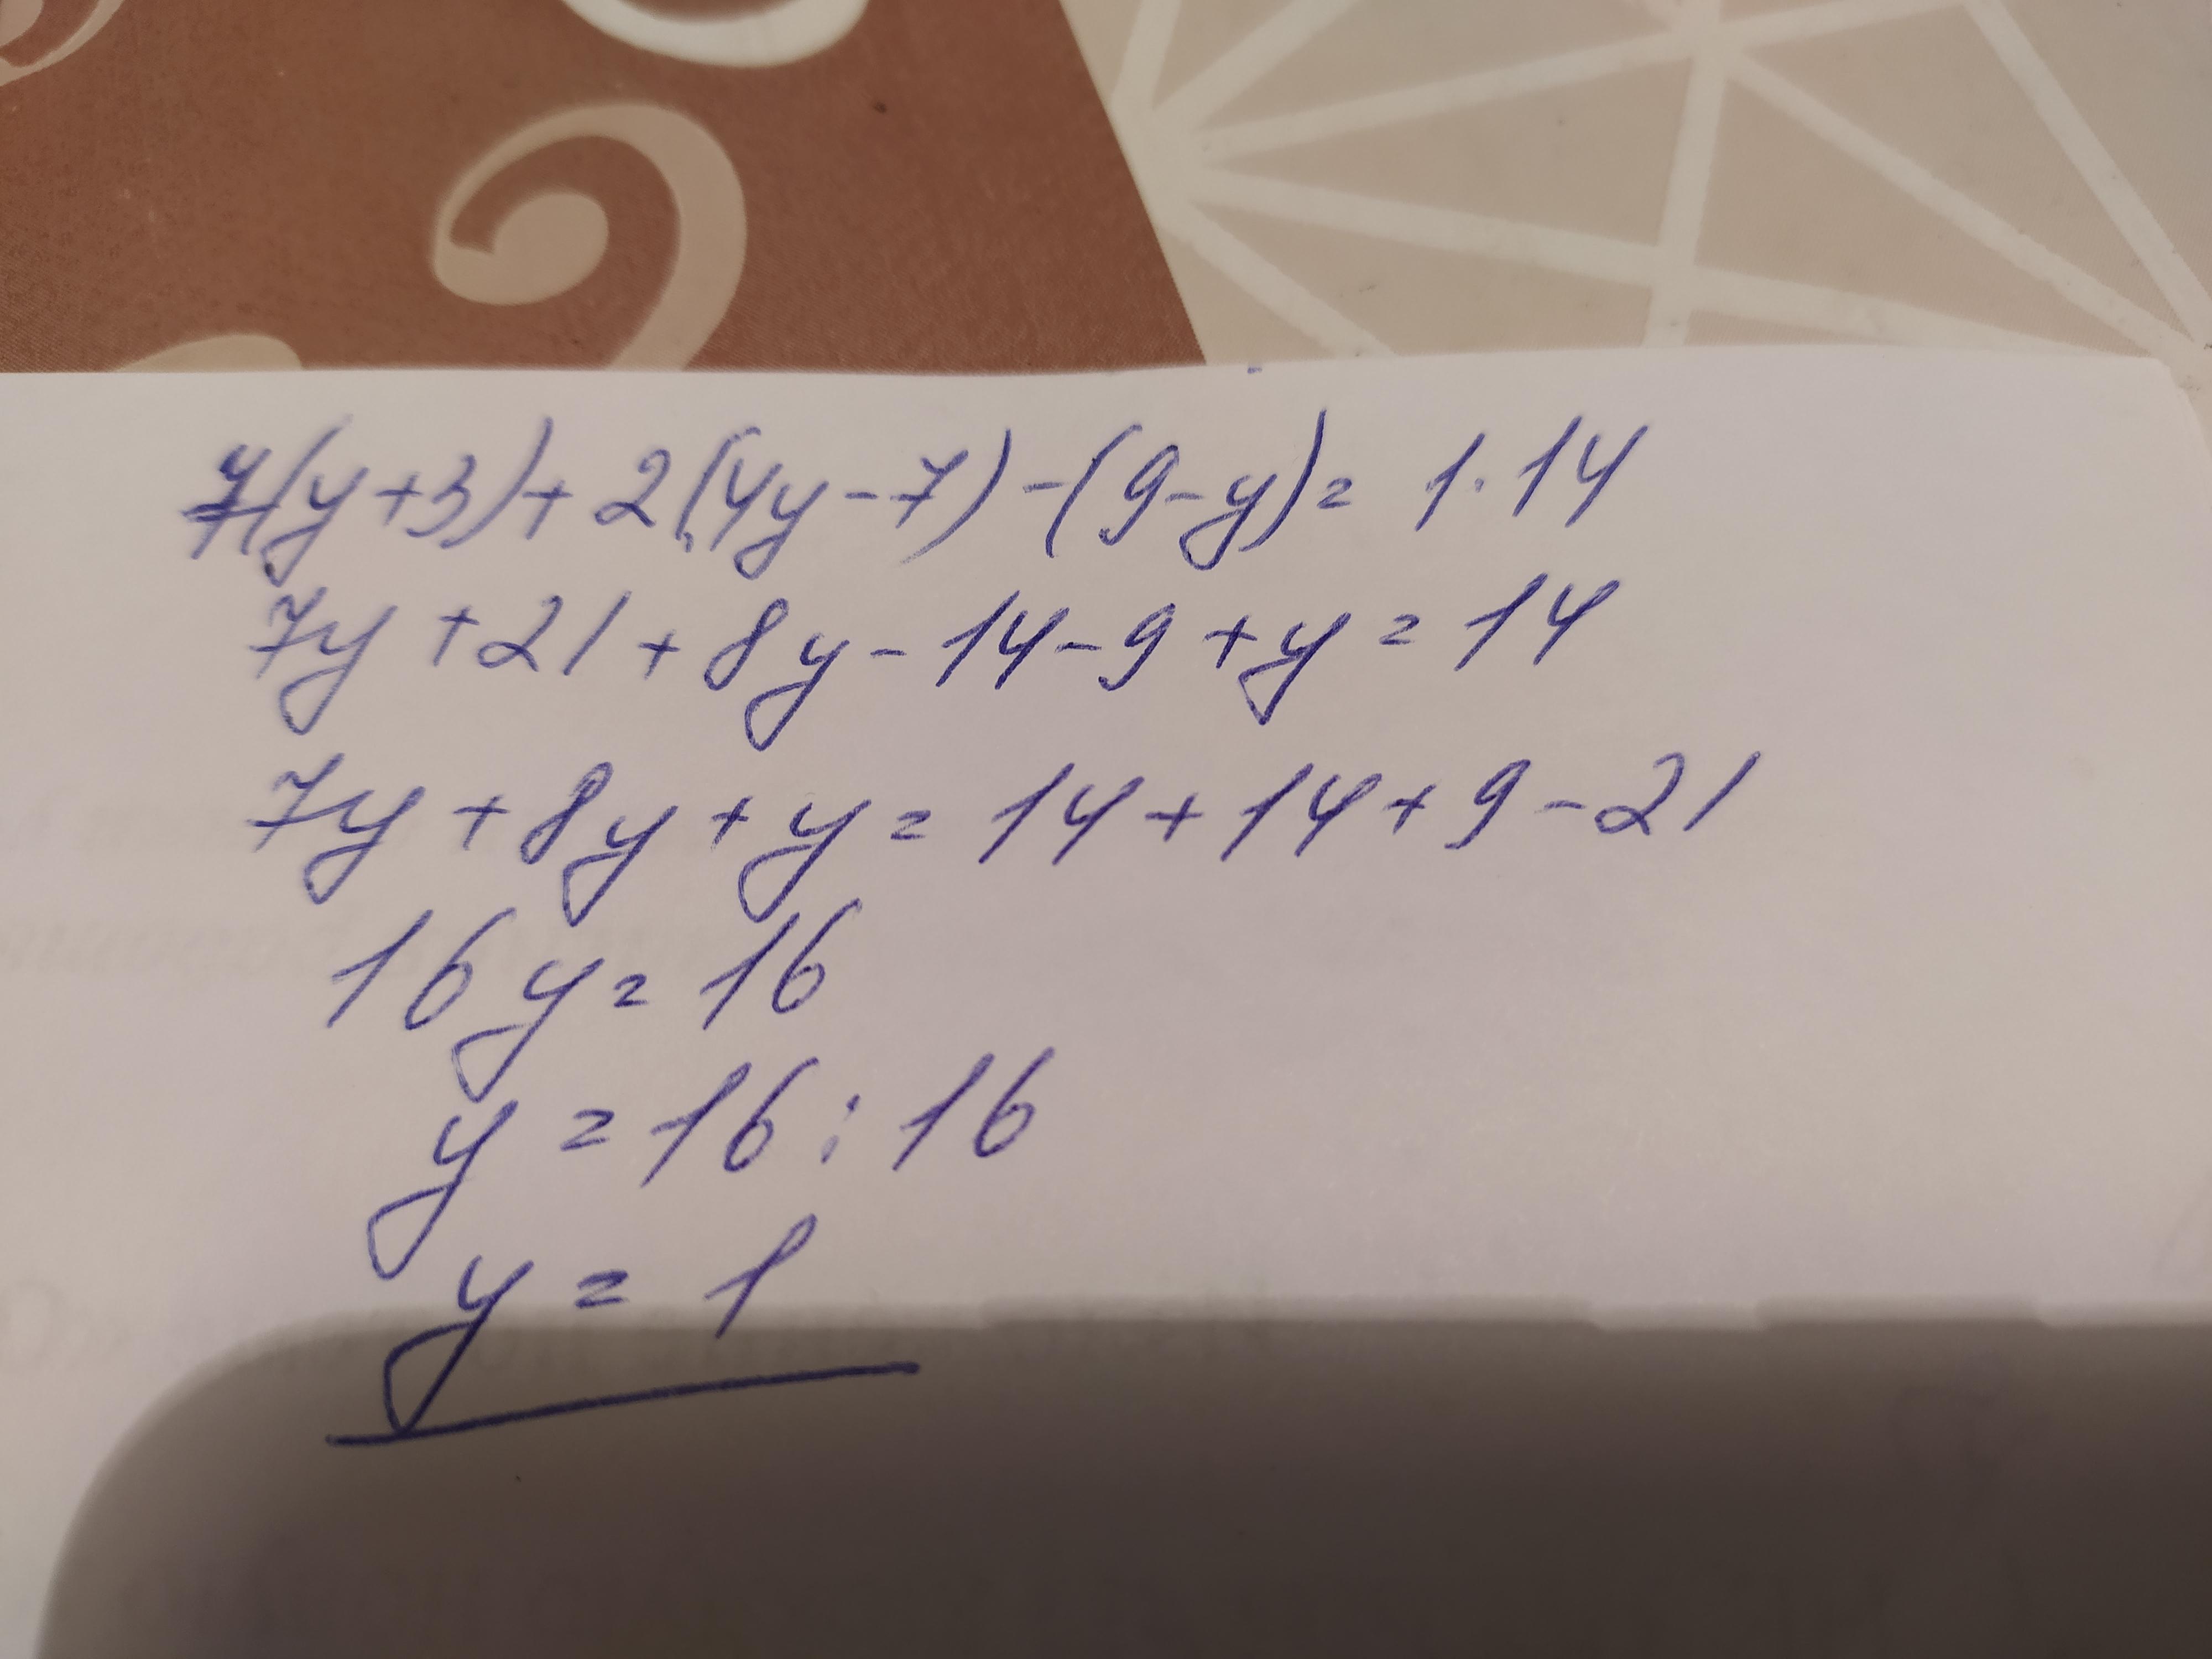 7(y+3)+2(4y-7)-(9-y)=1·14
7y+21+8y-14-9+y=14
7y+8y+y=14+14+9-21
16y=16
y=16:16
y=1